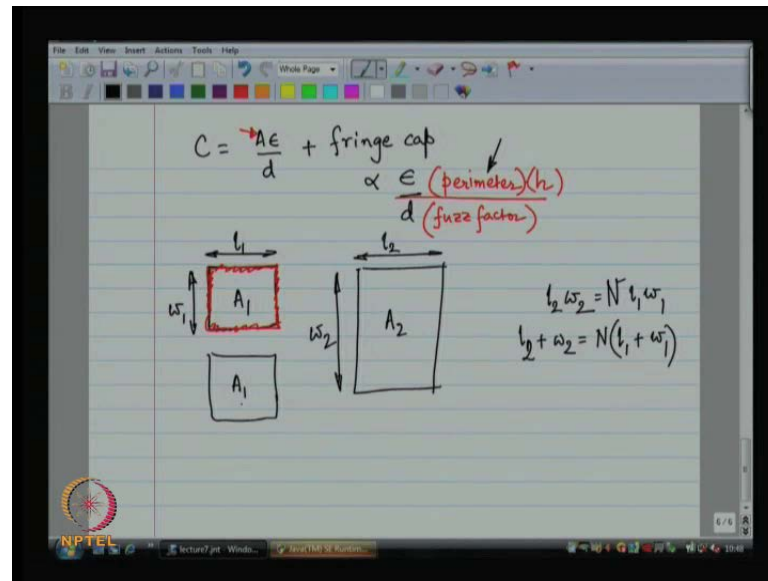 File Edit View Insert Actions Tools Help
Whole Page
B I
C = Aϵ/d + fringe cap
∝ ϵ (perimeter)(h) / d (fuzz factor)
l₁
l₂
w₁
A₁
w₂
A₂
l₂ w₂ = N l₁ w₁
l₂ + w₂ = N(l₁ + w₁)
A₁
6/6
NPTEL
lecture7.jnt - Windo...
Java(TM) SE Runtim...
10:48